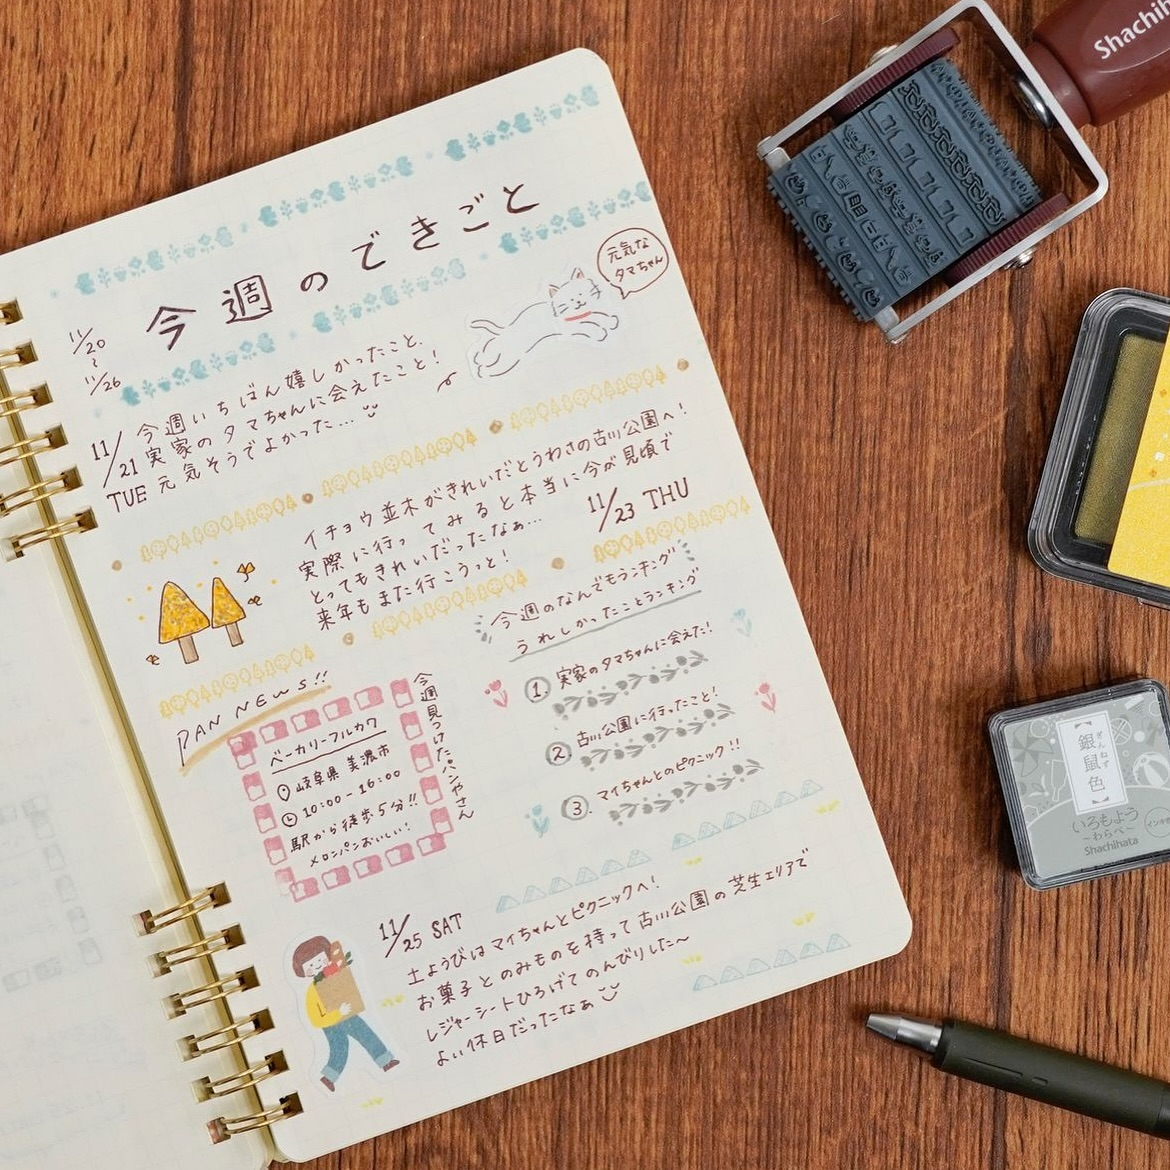 今週のできごと
11/20
〜
11/26
元気な
タマちゃん
11/21
TUE
今週いちばん嬉しかったこと、
実家のタマちゃんに会えたこと!
元気そうでよかった…
イチョウ並木がきれいだとうわさの古川公園へ!
実際に行ってみると本当に今が見頃で
とてもきれいだったなぁ…
来年もまた行こうっと!
11/23 THU
PAN NEWS!!
今週見つけたパンやさん
ベーカリーフルカワ
岐阜県美濃市
10:00-16:00
駅から徒歩5分!!
メロンパンおいしい!
今週のなんでもランキング
うれしかったことランキング
1. 実家のタマちゃんに会えた!
2 古川公園に行ったこと!
3. マイちゃんとのピクニック!!
11/25 SAT
土ようびはマイちゃんとピクニックへ!
お菓子とのみものを持って古川公園の芝生エリアで
レジャーシートひろげてのんびりした〜
よい休日だったなぁ
Shachih
【銀鼠色】
ぎんねず
いろもよう
~わらべ~
Shachihata